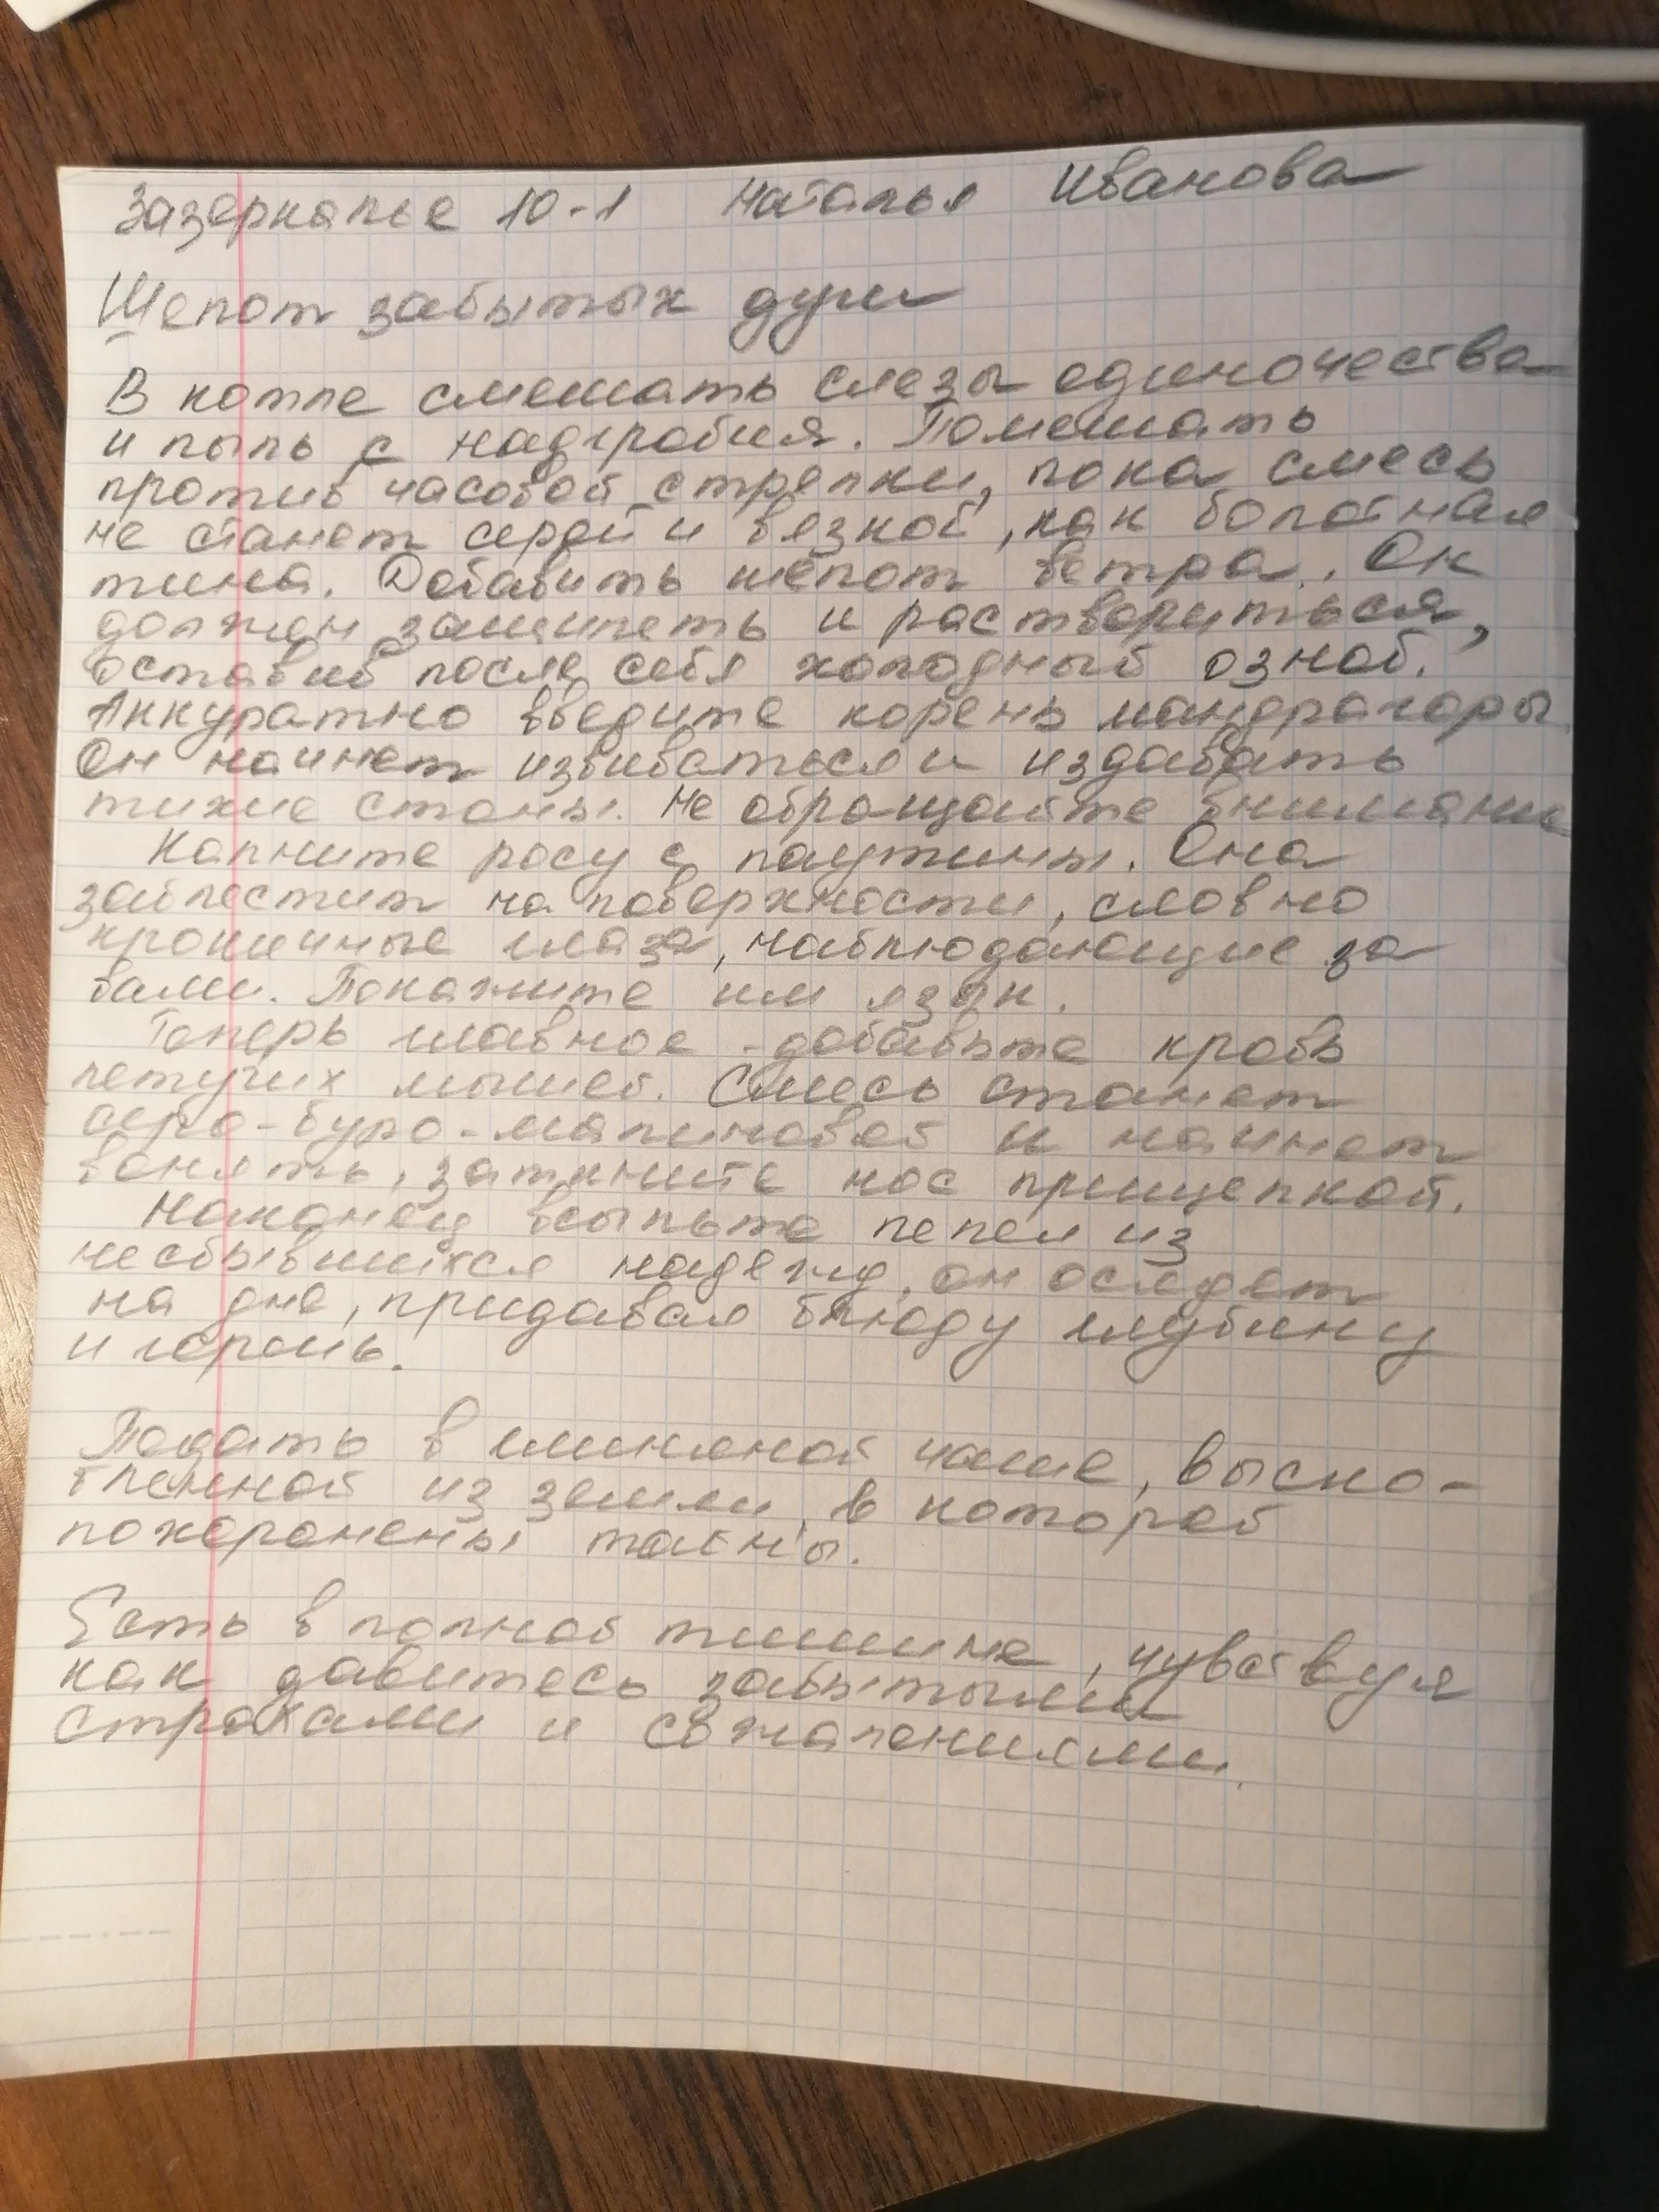 Зазеркалье 10-1 Наталья Иванова
Шепот забытых душ
В котле смешать слезы одиночества
и пыль с надгробия. Помешать
против часовой стрелки, пока смесь
не станет серой и вязкой, как болотная
тина. Добавить шёпот ветра. Он
должен зашипеть и раствориться,
оставив после себя холодный озноб.
Аккуратно введите корень мандрагоры.
Он начнет извиваться и издавать
тихие стоны. Не обращайте внимание
Капните росу с паутины. Она
заблестит на поверхности, словно
крошечные глаза, наблюдающие за
вами. Покажите им язык.
Теперь главное - добавьте кровь
летучих мышей. Смесь станет
серо-буро-малиновой и начнет
вонять, заткните нос прищепкой.
Наконец всыпьте пепел из
несбывшихся надежд, он осядет
на дне, придавая блюду глубину
и горечь.
Подать в глиняной чаше, выско-
бленной из земли, в которой
похоронены тайны.
Есть в полной тишине, чувствуя
как давитесь забытыми
страхами и сожалениями.